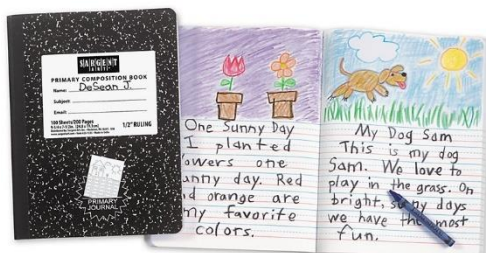 SARGENT
ART
PRIMARY COMPOSITION BOOK
Name: DeSean J.
Subject:
Email:
100 Sheets/200 Pages
1/2" RULING
PRIMARY
JOURNAL
One Sunny Day
I planted
owers one
unny day. Red
d orange are
my favorite
colors.
My Dog Sam
This is my dog
Sam. We love to
play in the grass. On
bright, sunny days
we have the most
fun.